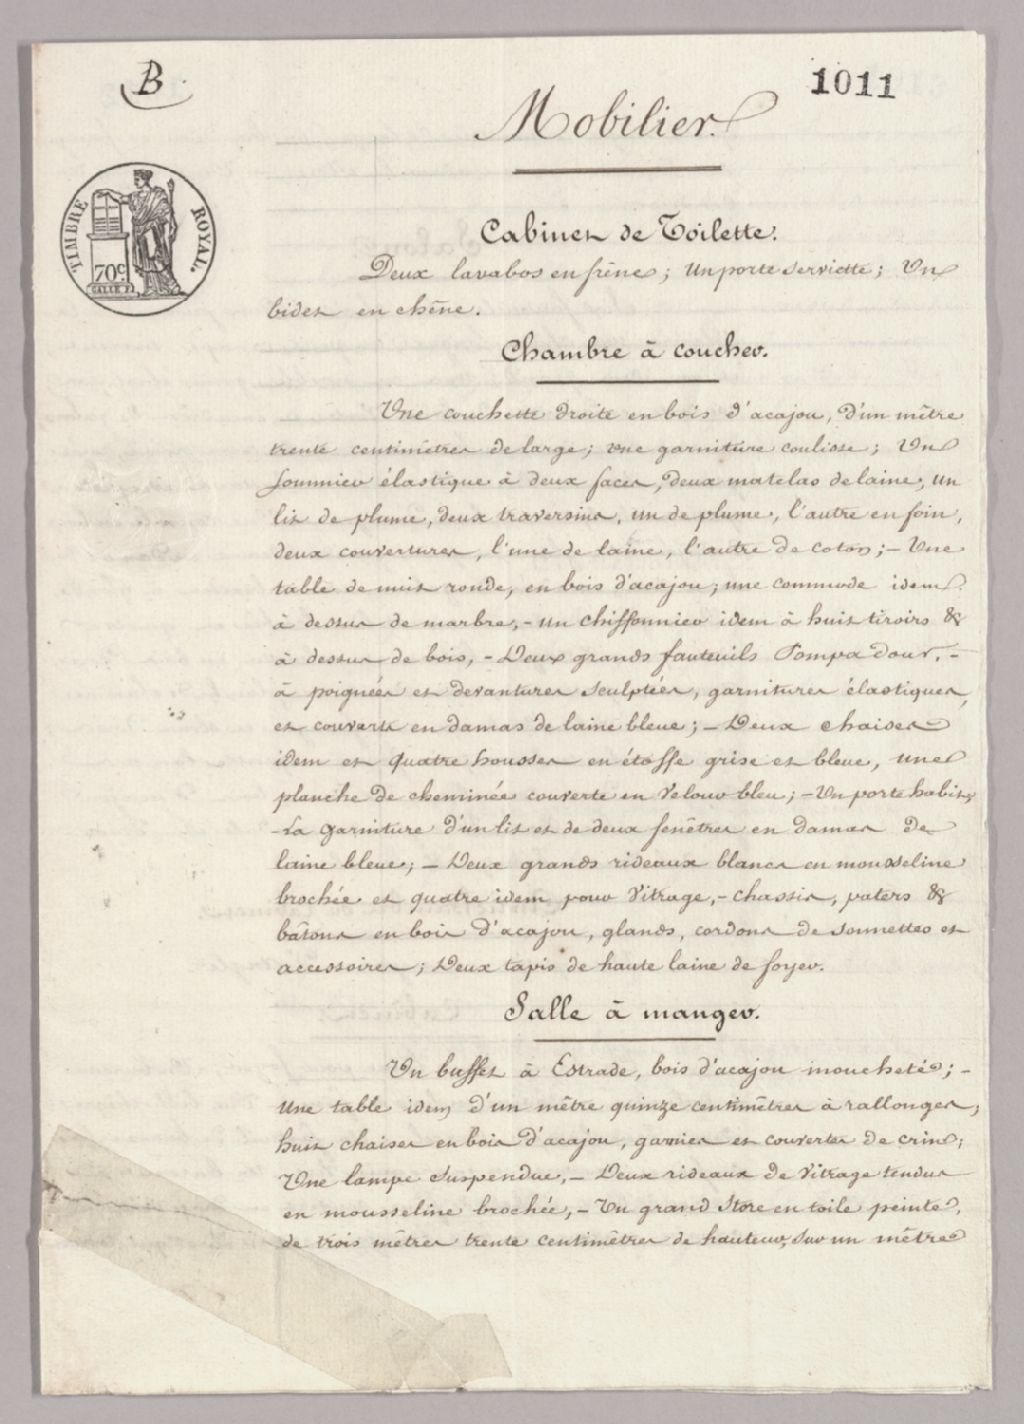 B
1011
Mobilier.
TIMBRE ROYAL.
70c.
Cabinet de Toilette.
Deux lavabos en frêne; Un porte serviette; Un
bidet en chêne.
Chambre à coucher.
Une couchette droite en bois d'acajou, d'un mêtre
trente centimêtres de large; une garniture coulisse; Un
sommier élastique à deux faces, deux matelas de laine, un
lit de plume, deux traversins, un de plume, l'autre en foin,
deux couvertures, l'une de laine, l'autre de coton; - Une
table de nuit ronde, en bois d'acajou; une commode idem
à dessus de marbre, - un chiffonnier idem à huit tiroirs &
à dessus de bois, - Deux grands fauteuils Pompadour, -
à poignées et devantures sculptées, garnitures élastiques,
et couverts en damas de laine bleue; - Deux chaises
idem et quatre housses en étoffe grise et bleue, une
planche de cheminée couverte en velour bleu; - Un porte habits,
- La garniture d'un lit et de deux fenêtres en damas de
laine bleue; - Deux grands rideaux blancs en mousseline
brochée et quatre idem pour vitrage, - chassis, paters &
bâtons en bois d'acajou, glands, cordons de sonnettes et
accessoires; Deux tapis de haute laine de foyer.
Salle à manger.
Un buffet à Estrade, bois d'acajou moucheté; -
Une table idem, d'un mêtre quinze centimêtres à rallonges,
huit chaises en bois d'acajou, garnies et couvertes de crin;
Une lampe suspendue, - Deux rideaux de vitrage tendus
en mousseline brochée, - Un grand store en toile peinte,
de trois mêtres trente centimêtres de hauteur, sur un mêtre